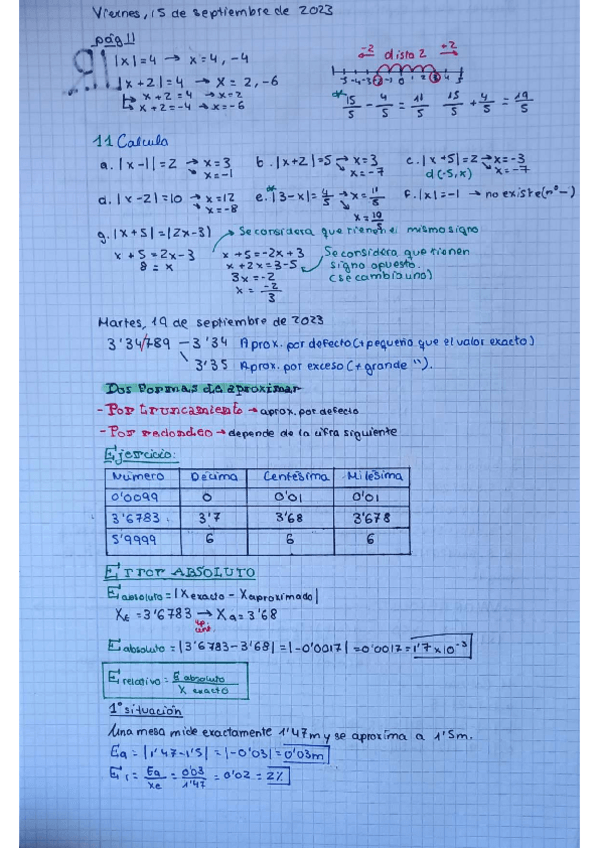 Viernes, 15 de septiembre de 2023
pág 11
|x|=4 → x=4, -4
|x+2|=4 → x=2, -6
x+2=4 → x=2
x+2=-4 → x=-6
-2 dista 2 +2
15/5 - 4/5 = 11/5 15/5 + 4/5 = 19/5
11 Calcula
a. |x-1|=2 → x=3
→ x=-1
b. |x+2|=5 → x=3
→ x=-7
c. |x+5|=2 → x=-3
→ x=-7
d(-5,x)
d. |x-2|=10 → x=12
→ x=-8
e. |3-x|=4/5 → x=11/5
x=19/5
f. |x|=-1 → no existe (nº-)
g. |x+5|=|2x-3|
→ Se considera que tienen el mismo signo
x+5=2x-3
8=x
x+5=-2x+3
x+2x=3-5
3x=-2
x=-2/3
Se considera que tienen
signo opuesto.
(se cambia uno)
Martes, 19 de septiembre de 2023
3'34/789 — 3'34 Aprox. por defecto (+pequeño que el valor exacto)
3'35 Aprox. por exceso (+grande ").
Dos formas de aproximar
- Por truncamiento → aprox. por defecto
- Por redondeo → depende de la cifra siguiente
Ejercicio:
Número Décima Centésima Milésima
0'0099 0 0'01 0'01
3'6783 3'7 3'68 3'678
5'9999 6 6 6
Error ABSOLUTO
Eabsoluto = |Xexacto - Xaproximado|
XE = 3'6783 → Xa = 3'68
Eabsoluto = |3'6783-3'68| = |-0'0017| = 0'0017 = 1'7×10⁻³
Erelativo = E absoluto / X exacto
1ª situación
Una mesa mide exactamente 1'47m y se aproxima a 1'5m.
Ea = |1'47-1'5| = |-0'03| = 0'03m
Er = Ea/xe = 0'03/1'47 = 0'02 = 2%